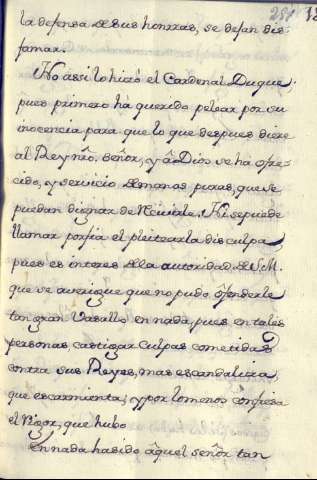 251
la defensa de sus honrras, se dejan dis-
famar.
No assi lo hizo el Cardenal Duque.
pues primero há querido pelear por su
inocencia para que lo que despues diere
al Rey nro. señor, y â Dios se ha ofre-
cido, y servicio de manos puras, que se
puedan dignar de recivirle. Ni se puede
llamar porfia el pleitear la disculpa,
pues es interes de la autoridad de S.M.
que se averigue que no pudo ôfenderle
tan gran Vasallo en nada, pues en tales
personas castigar culpas cometidas
contra sus Reyes, mas escandaliza,
que escarmienta, y por lo menos confiesa
el rigor, que hubo
En nada ha sido âquel señor tan